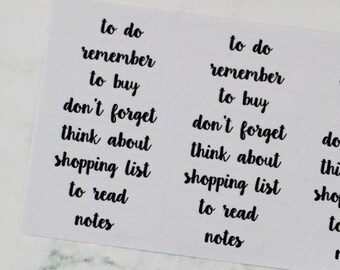 to do
remember
to buy
don't forget
think about
shopping list
to read
notes
to do
remember
to buy
don't forget
think about
shopping list
to read
notes